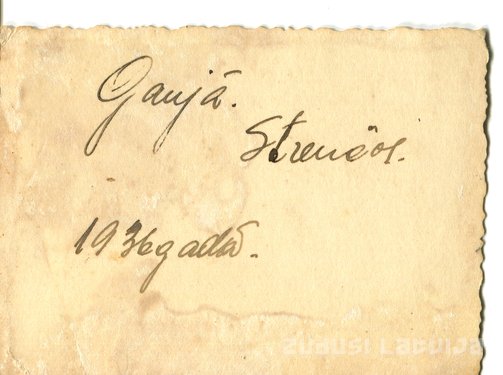 Gaujā.
Strenčos.
1936 gadā.
zudusi Latvija